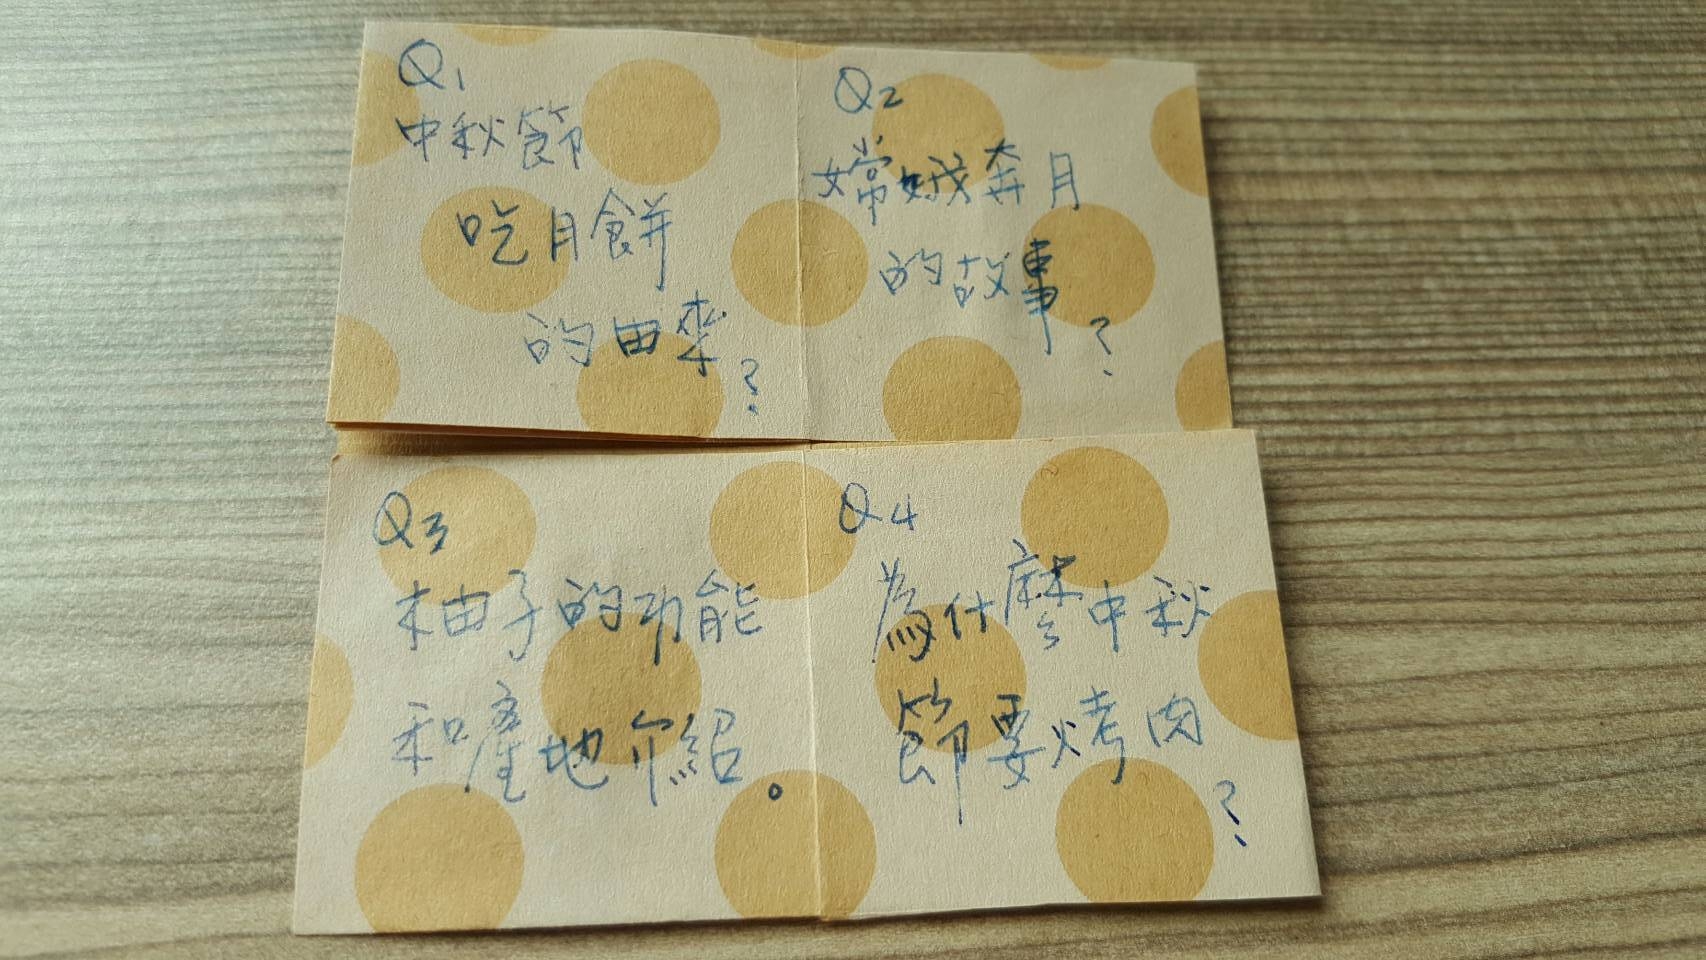 Q1
中秋節
吃月餅
的由來?
Q2
嫦娥奔月
的故事?
Q3
柚子的功能
和產地介紹。
Q4
為什麼中秋
節要烤肉?